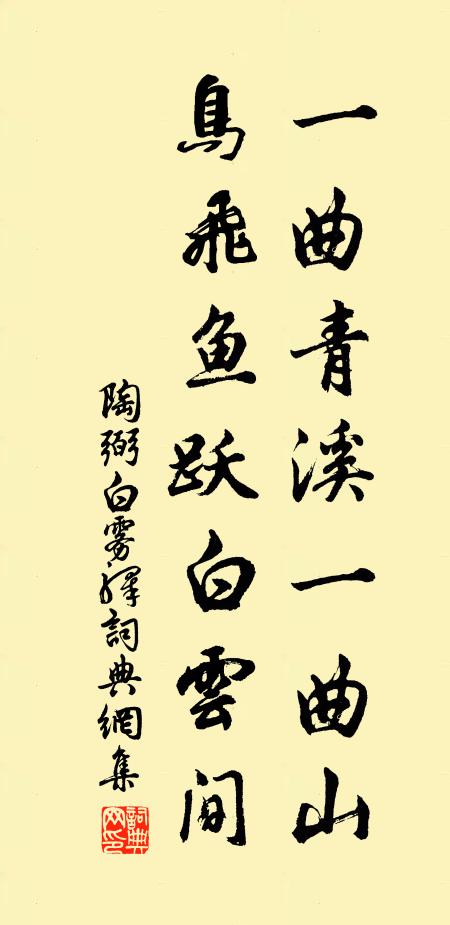 一曲青溪一曲山
鳥飛鱼跃白雲间
陶弼白雾驿詞典網集
詞典网印